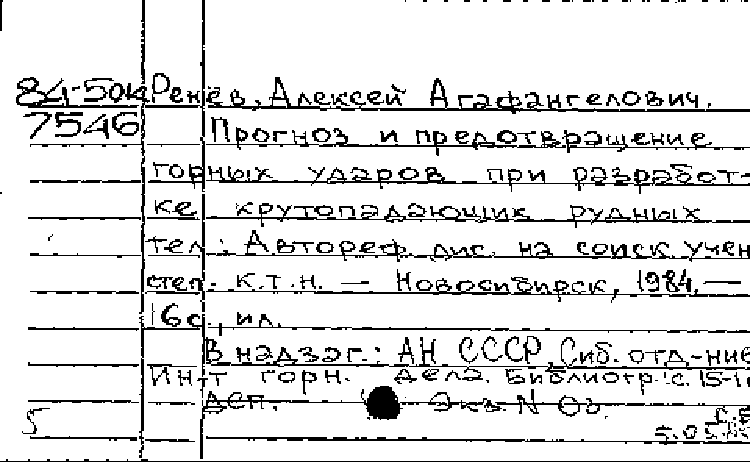 84-50к Ренёв, Алексей Агафангелович.
7546 Прогноз и предотвращение
горных ударов при разработ-
ке крутопадающих рудных
тел: Автореф. дис. на соиск. учен
степ. к.т.н. — Новосибирск, 1984. —
16с., ил.
В надзаг.: АН СССР, Сиб. отд-ние
Ин-т горн. дела. Библиогр.: с. 15-1
ДСП. Экз. N 03
5